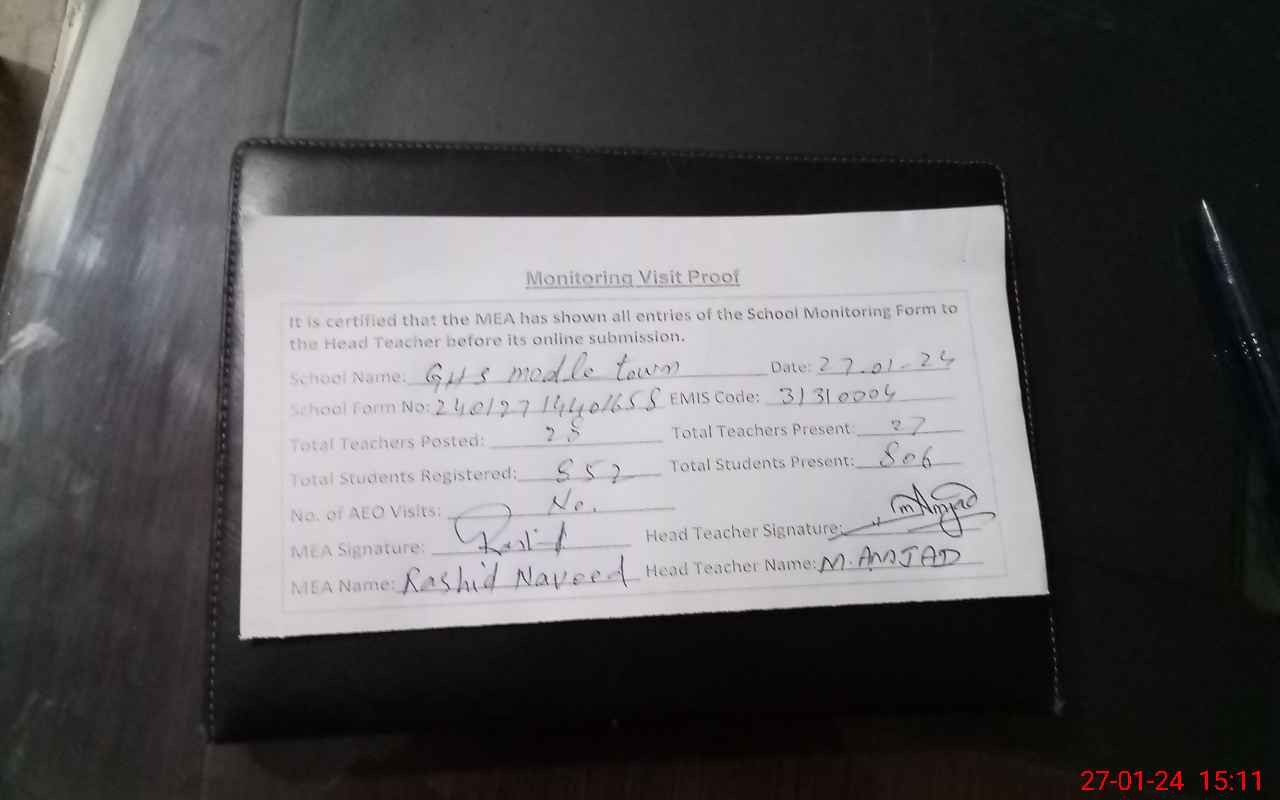 Monitoring Visit Proof
It is certified that the MEA has shown all entries of the School Monitoring Form to
the Head Teacher before its online submission.
School Name: GHS modle town Date: 27.01-24
School Form No: EMIS Code: 31310004
Total Teachers Posted: 28 Total Teachers Present: 27
Total Students Registered: 852 Total Students Present: 806
No. of AEO Visits: No.
MEA Signature: Rashid Head Teacher Signature: mAmjad
MEA Name: Rashid Naveed Head Teacher Name: M. AMJAD
27-01-24 15:11